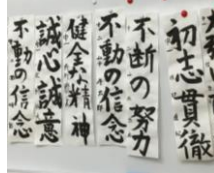 初志貫徹
不断の努力
不動の信念
健全な精神
誠心誠意
不動の信念